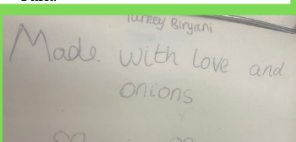 Turkey Biryani
Made with love and
onions